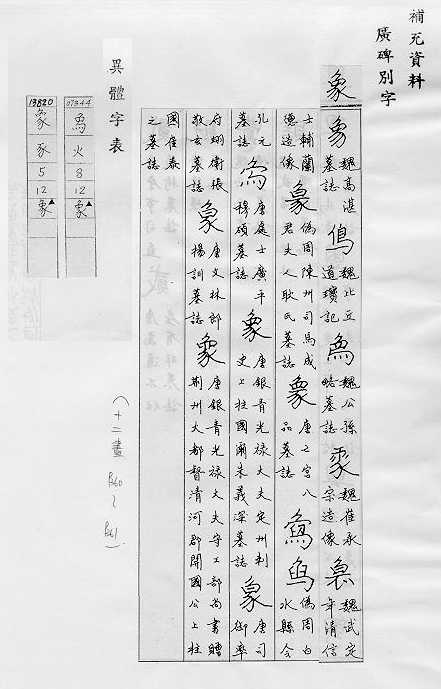 補充資料
廣碑別字
象
魏高湛墓誌
魏北丘道瓊記
魏公孫略墓誌
魏崔永宗造像
魏武定年清信
士輔蘭德造像
象
偽周陳州司馬成君夫人耿氏墓誌
象
唐之字八品墓誌
偽周白水縣令
孔元墓誌
唐處士廣平穆碩墓誌
象
唐銀青光祿大夫定州刺史上柱國爾朱義深墓誌
象
唐司御率
府翊衛張敬玄墓誌
象
唐文林郎楊訓墓誌
唐銀青光祿大夫守工部尚書贈荊州大都督清河郡開國公上柱
國崔泰之墓誌
(十二畫 P260~P261)
異體字表
07344
火
8
12
象▲
13820
豕
5
12
象▲